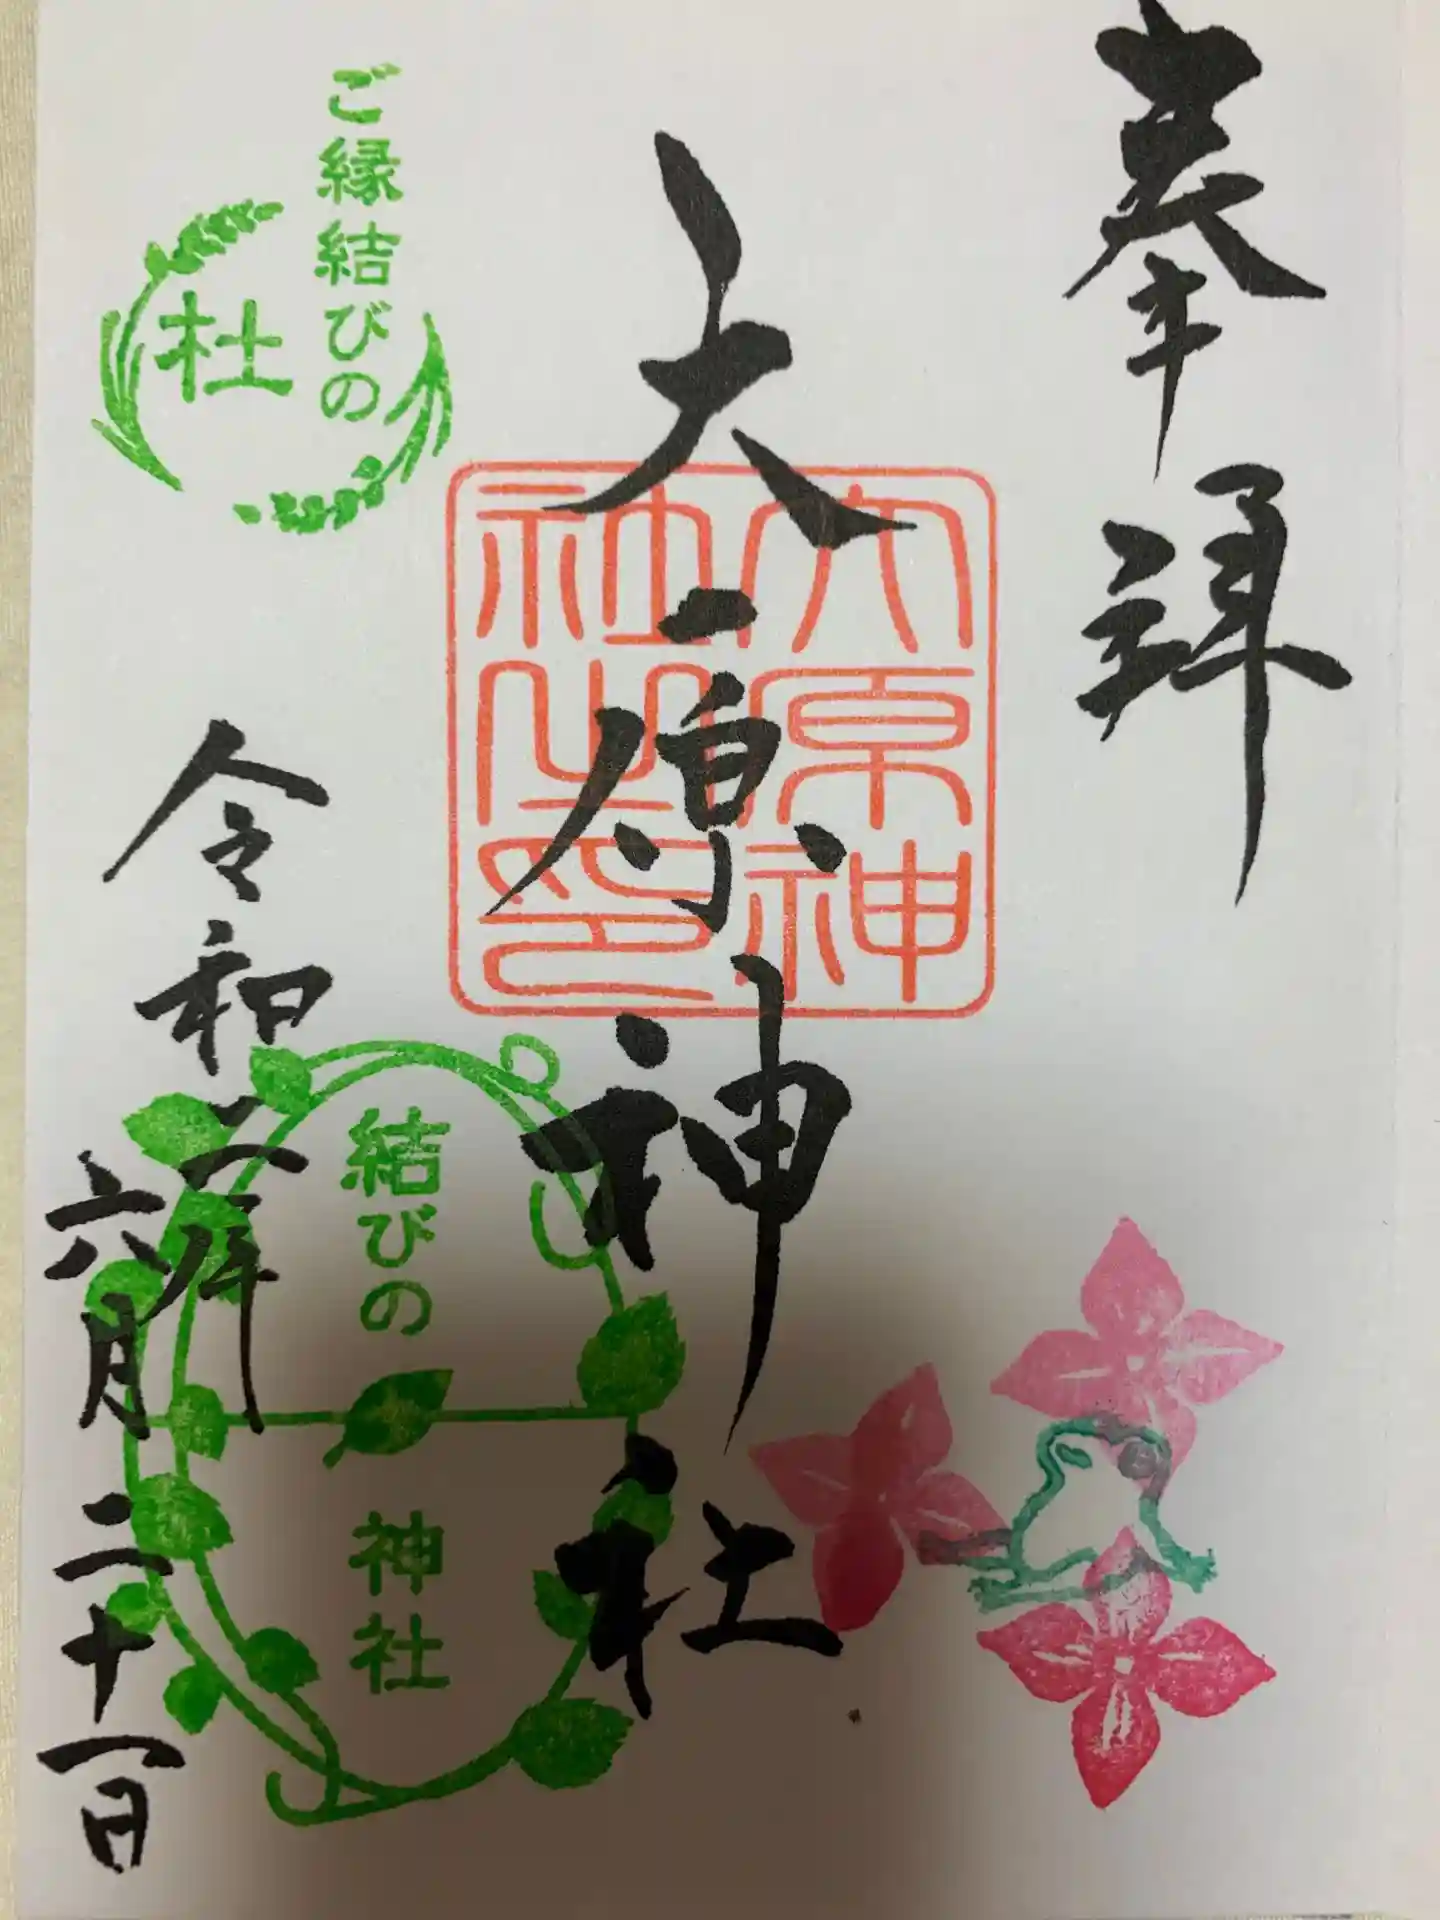 奉拝
大原神社
大原神社之印
ご縁結びの
杜
結びの
神社
令和六年
六月二十一日